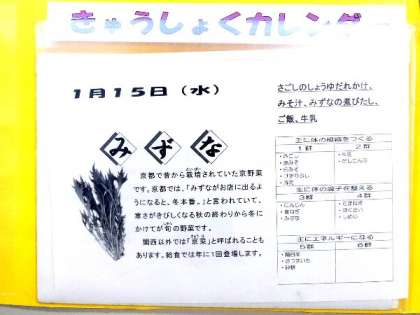 きゅうしょくカレンダー
1月15日（水）
さごしのしょうゆだれかけ、
みそ汁、みずなの煮びたし、
ご飯、牛乳
みずな
京都で昔から栽培されていた京野菜
です。京都では、「みずながお店に出るよ
うになると、冬本番。」と言われていて、
寒さがきびしくなる秋の終わりから冬に
かけてが旬の野菜です。
関西以外では「京菜」と呼ばれることも
あります。給食では年に1回登場します。
主に体の組織をつくる
1群 2群
・さごし
・牛乳
主に体の調子を整える
3群 4群
・にんじん
・みずな
・しめじ
主にエネルギーになる
5群 6群